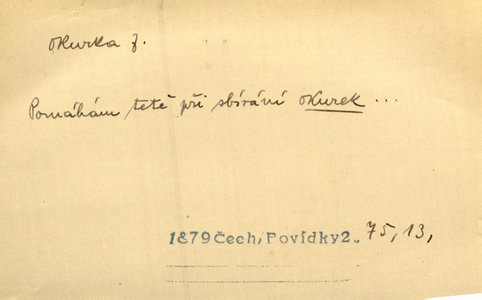 okurka f.
Pomáhám tetě při sbírání okurek ...
1879 Čech, Povídky 2„ 75, 13,